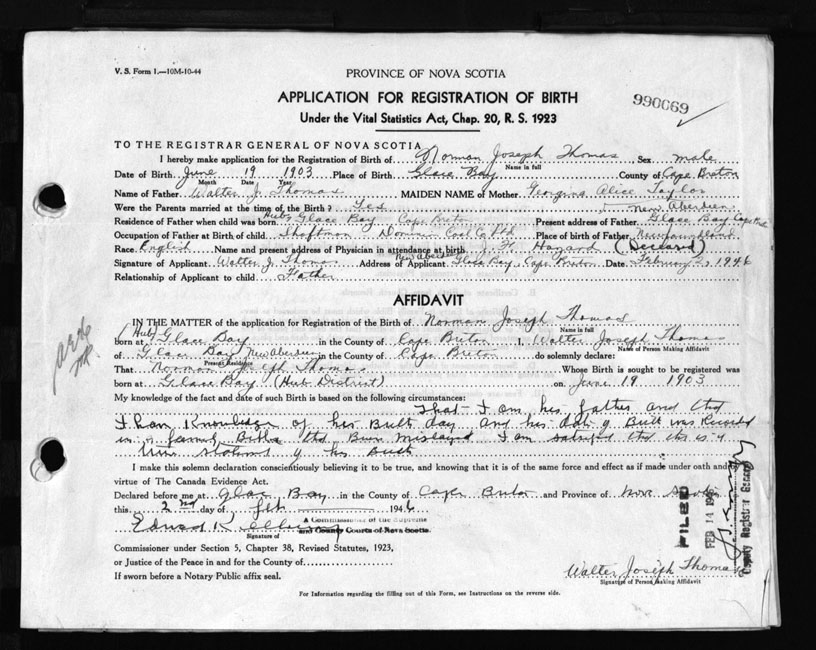 V. S. Form 1.—10M-10-44
PROVINCE OF NOVA SCOTIA
APPLICATION FOR REGISTRATION OF BIRTH
990069
Under the Vital Statistics Act, Chap. 20, R. S. 1923
TO THE REGISTRAR GENERAL OF NOVA SCOTIA
I hereby make application for the Registration of Birth of Norman Joseph Thomas Sex male
Name in full
Date of Birth June 19 1903 Place of Birth Glace Bay County of Cape Breton
Month Date Year
Name of Father Walter J. Thomas MAIDEN NAME of Mother Georgina Alice Taylor
Were the Parents married at the time of the Birth? Yes New Aberdeen
Residence of Father when child was born Hub Glace Bay Cape Breton Present address of Father Glace Bay Cape Breton
Occupation of Father at Birth of child Shaftman Dominion Coal Co Ltd Place of birth of Father Newfoundland
Race English Name and present address of Physician in attendance at birth J. H. Hayard (Deceased)
New Aberdeen
Signature of Applicant Walter J. Thomas Address of Applicant Glace Bay, Cape Breton Date February 2, 1946
Relationship of Applicant to child Father
AFFIDAVIT
IN THE MATTER of the application for Registration of the Birth of Norman Joseph Thomas
Name in full
born at (Hub) Glace Bay in the County of Cape Breton I, Walter Joseph Thomas
Name of Person Making Affidavit
of Glace Bay New Aberdeen in the County of Cape Breton do solemnly declare:
Present Residence
That Norman Joseph Thomas Whose Birth is sought to be registered was
born at Glace Bay (Hub District) on June 19 1903
My knowledge of the fact and date of such Birth is based on the following circumstances:
That I am his father and that
I have Knowledge of his Birth day and his date of Birth was Recorded
in a family Bible that Been mislayed I am satisfied that this is a
true statement of his Birth
I make this solemn declaration conscientiously believing it to be true, and knowing that it is of the same force and effect as if made under oath and by
virtue of The Canada Evidence Act.
Declared before me at Glace Bay in the County of Cape Breton and Province of Nova Scotia
this 2nd day of Feb 1946
A Commissioner of the Supreme
and County Courts of Nova Scotia.
Signature of
Commissioner under Section 5, Chapter 38, Revised Statutes, 1923,
or Justice of the Peace in and for the County of
If sworn before a Notary Public affix seal.
Walter Joseph Thomas
Signature of Person Making Affidavit
For Information regarding the filling out of this Form, see Instructions on the reverse side.
FILED
FEB 14 1946
Deputy Registrar General